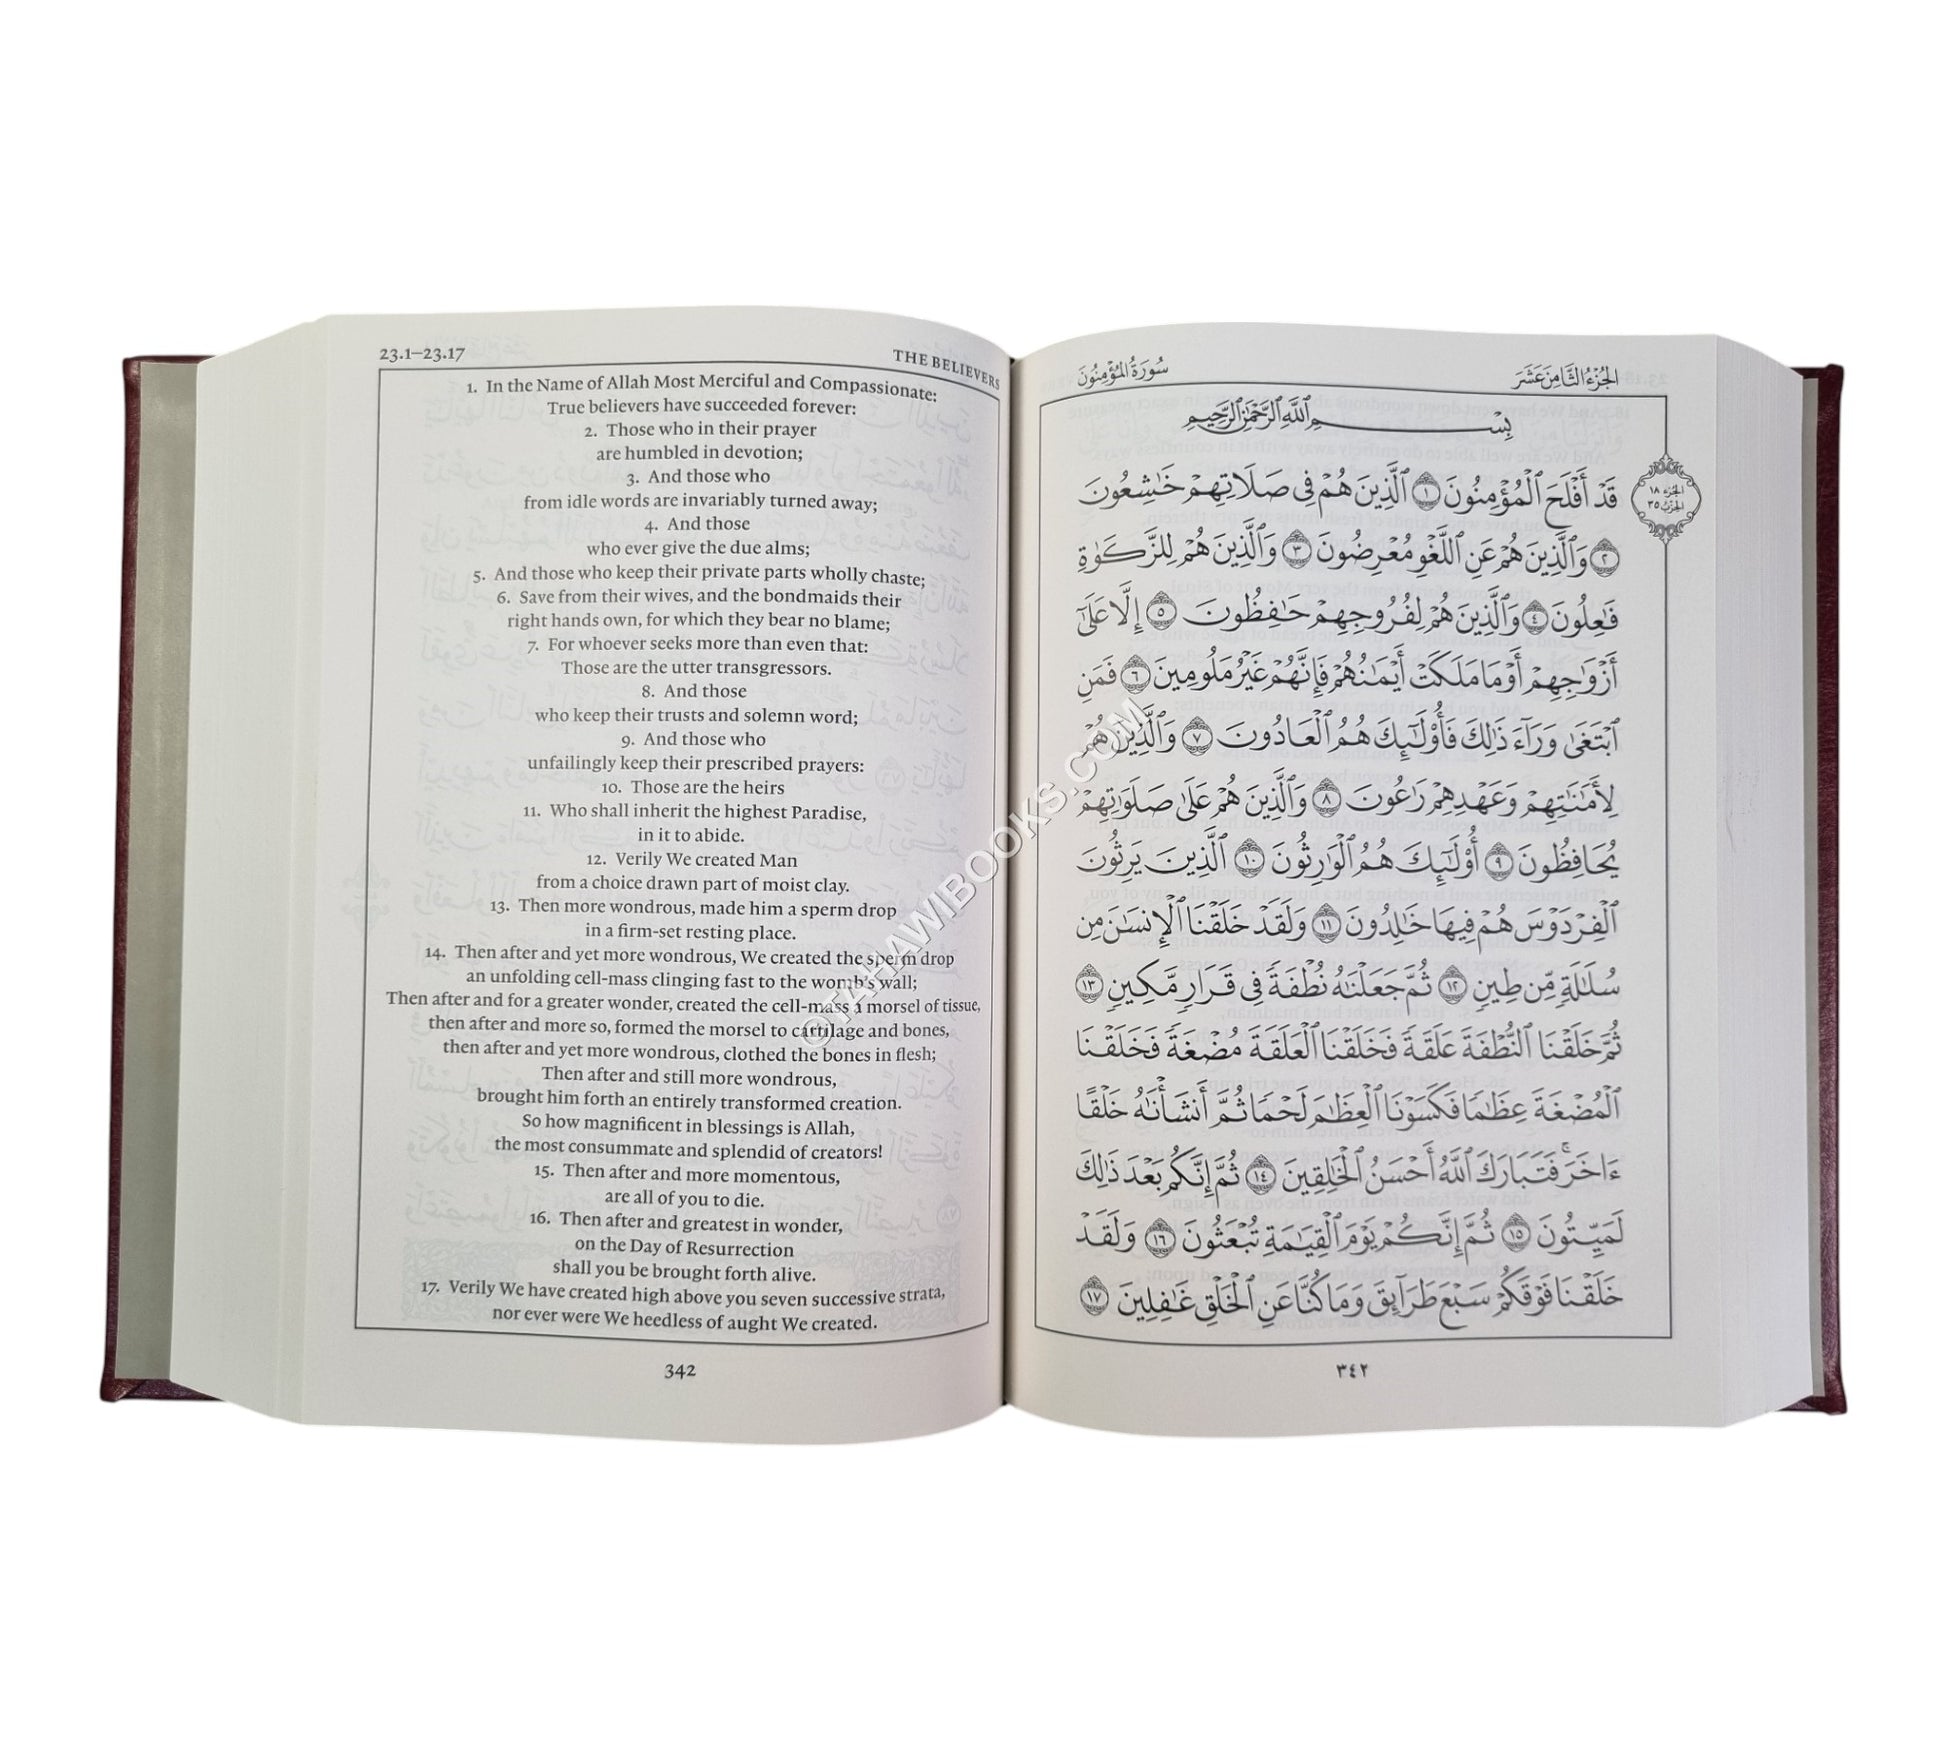 23.1–23.17
THE BELIEVERS
1. In the Name of Allah Most Merciful and Compassionate:
True believers have succeeded forever:
2. Those who in their prayer
are humbled in devotion;
3. And those who
from idle words are invariably turned away;
4. And those
who ever give the due alms;
5. And those who keep their private parts wholly chaste;
6. Save from their wives, and the bondmaids their
right hands own, for which they bear no blame;
7. For whoever seeks more than even that:
Those are the utter transgressors.
8. And those
who keep their trusts and solemn word;
9. And those who
unfailingly keep their prescribed prayers:
10. Those are the heirs
11. Who shall inherit the highest Paradise,
in it to abide.
12. Verily We created Man
from a choice drawn part of moist clay.
13. Then more wondrous, made him a sperm drop
in a firm-set resting place.
14. Then after and yet more wondrous, We created the sperm drop
an unfolding cell-mass clinging fast to the womb's wall;
Then after and for a greater wonder, created the cell-mass a morsel of tissue,
then after and more so, formed the morsel to cartilage and bones,
then after and yet more wondrous, clothed the bones in flesh;
Then after and still more wondrous,
brought him forth an entirely transformed creation.
So how magnificent in blessings is Allah,
the most consummate and splendid of creators!
15. Then after and more momentous,
are all of you to die.
16. Then after and greatest in wonder,
on the Day of Resurrection
shall you be brought forth alive.
17. Verily We have created high above you seven successive strata,
nor ever were We heedless of aught We created.
342
الجُزْءُ الثَّامِنَ عَشَرَ
سُورَةُ المُؤْمِنُونَ
بِسْمِ ٱللَّهِ ٱلرَّحْمَٰنِ ٱلرَّحِيمِ
قَدْ أَفْلَحَ ٱلْمُؤْمِنُونَ ١ ٱلَّذِينَ هُمْ فِى صَلَاتِهِمْ خَٰشِعُونَ
٢ وَٱلَّذِينَ هُمْ عَنِ ٱللَّغْوِ مُعْرِضُونَ ٣ وَٱلَّذِينَ هُمْ لِلزَّكَوٰةِ
فَٰعِلُونَ ٤ وَٱلَّذِينَ هُمْ لِفُرُوجِهِمْ حَٰفِظُونَ ٥ إِلَّا عَلَىٰٓ
أَزْوَٰجِهِمْ أَوْ مَا مَلَكَتْ أَيْمَٰنُهُمْ فَإِنَّهُمْ غَيْرُ مَلُومِينَ ٦ فَمَنِ
ٱبْتَغَىٰ وَرَآءَ ذَٰلِكَ فَأُو۟لَٰٓئِكَ هُمُ ٱلْعَادُونَ ٧ وَٱلَّذِينَ هُمْ
لِأَمَٰنَٰتِهِمْ وَعَهْدِهِمْ رَٰعُونَ ٨ وَٱلَّذِينَ هُمْ عَلَىٰ صَلَوَٰتِهِمْ
يُحَافِظُونَ ٩ أُو۟لَٰٓئِكَ هُمُ ٱلْوَٰرِثُونَ ١٠ ٱلَّذِينَ يَرِثُونَ
ٱلْفِرْدَوْسَ هُمْ فِيهَا خَٰلِدُونَ ١١ وَلَقَدْ خَلَقْنَا ٱلْإِنسَٰنَ مِن
سُلَٰلَةٍ مِّن طِينٍ ١٢ ثُمَّ جَعَلْنَٰهُ نُطْفَةً فِى قَرَارٍ مَّكِينٍ ١٣
ثُمَّ خَلَقْنَا ٱلنُّطْفَةَ عَلَقَةً فَخَلَقْنَا ٱلْعَلَقَةَ مُضْغَةً فَخَلَقْنَا
ٱلْمُضْغَةَ عِظَٰمًا فَكَسَوْنَا ٱلْعِظَٰمَ لَحْمًا ثُمَّ أَنشَأْنَٰهُ خَلْقًا
ءَاخَرَ ۚ فَتَبَارَكَ ٱللَّهُ أَحْسَنُ ٱلْخَٰلِقِينَ ١٤ ثُمَّ إِنَّكُم بَعْدَ ذَٰلِكَ
لَمَيِّتُونَ ١٥ ثُمَّ إِنَّكُمْ يَوْمَ ٱلْقِيَٰمَةِ تُبْعَثُونَ ١٦ وَلَقَدْ
خَلَقْنَا فَوْقَكُمْ سَبْعَ طَرَآئِقَ وَمَا كُنَّا عَنِ ٱلْخَلْقِ غَٰفِلِينَ ١٧
الجزء ١٨
الحزب ٣٥
٣٤٢
©TAHAWIBOOKS.COM